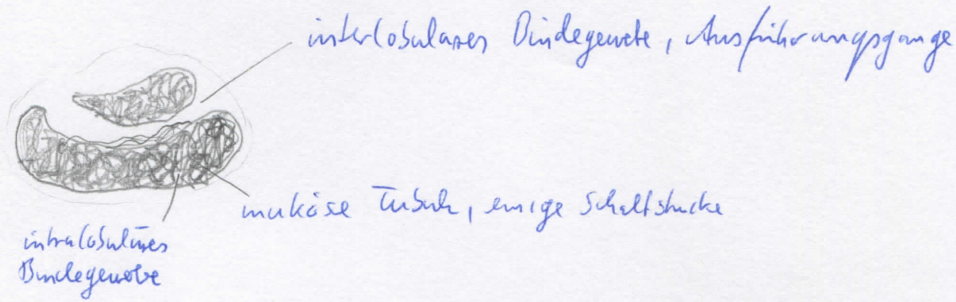 interlobuläres Bindegewebe, Ausführungsgänge
muköse Tubuli, einige Schaltstücke
intralobuläres
Bindegewebe